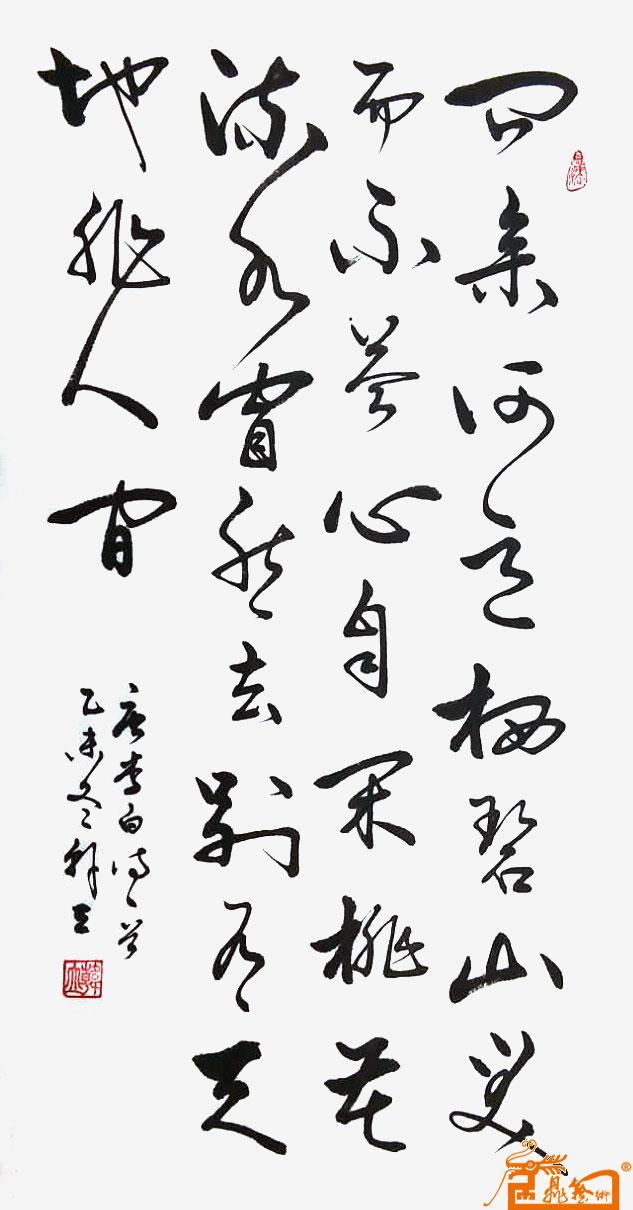 问余何意栖碧山笑
而不答心自闲桃花
流水窅然去别有天
地非人间
唐李白诗一首
乙未冬